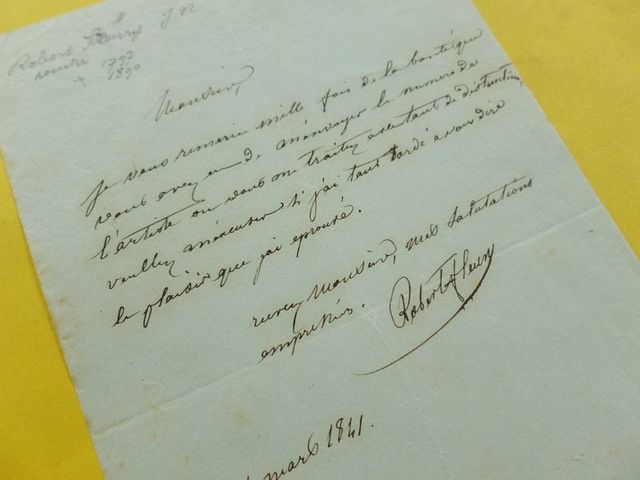 Robert Fleury
1797
+ 1890
Monsieur,
Je vous remercie mille fois de la bonté que
vous avez eu de m'envoyer le numero de
l'artiste ou vous me traitez avec tant de distinction,
veuillez m'excuser si j'ai tant tardé a vous dire
le plaisir que j'ai eprouvé.
recevez Monsieur, mes salutations
empressées.
Robert Fleury
mars 1841.